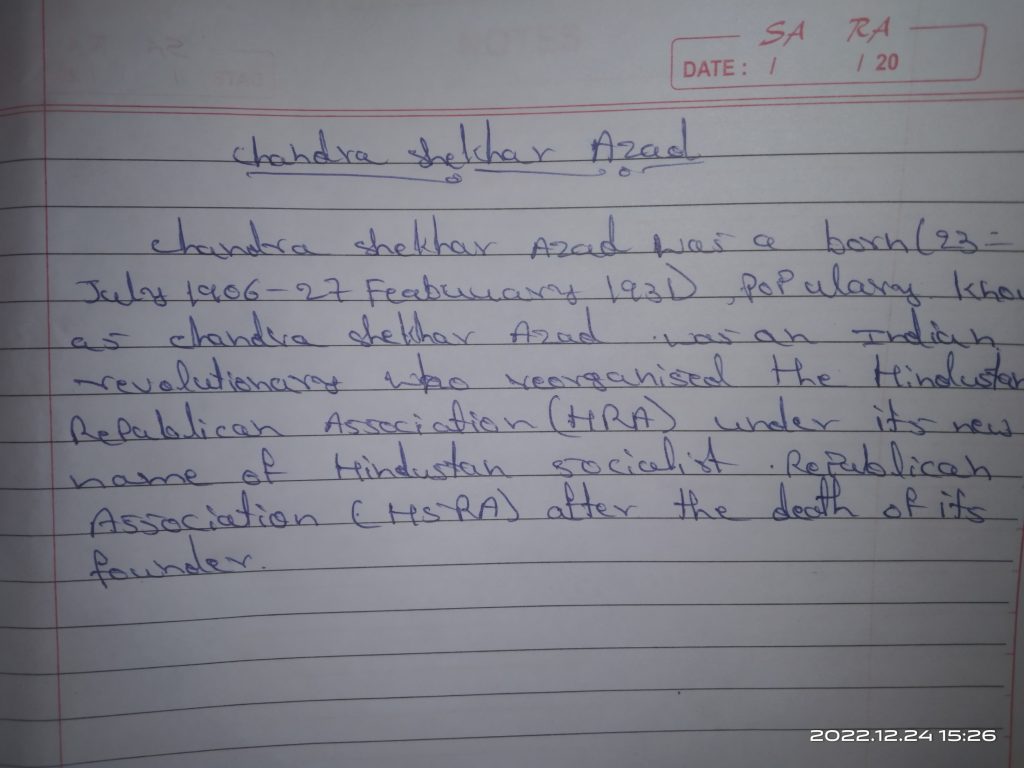 SA RA
DATE: / / 20
Chandra Shekhar Azad
Chandra Shekhar Azad was a born (23 =
July 1906-27 Feabuuuary 1931), PoPulary know
as Chandra Shekhar Azad was an Indian
revolutionary who reorganised the Hindustan
RePablican Association (HRA) under its new
name of Hindustan socialist RePublican
Association (HSRA) after the death of its
founder.
2022.12.24 15:26